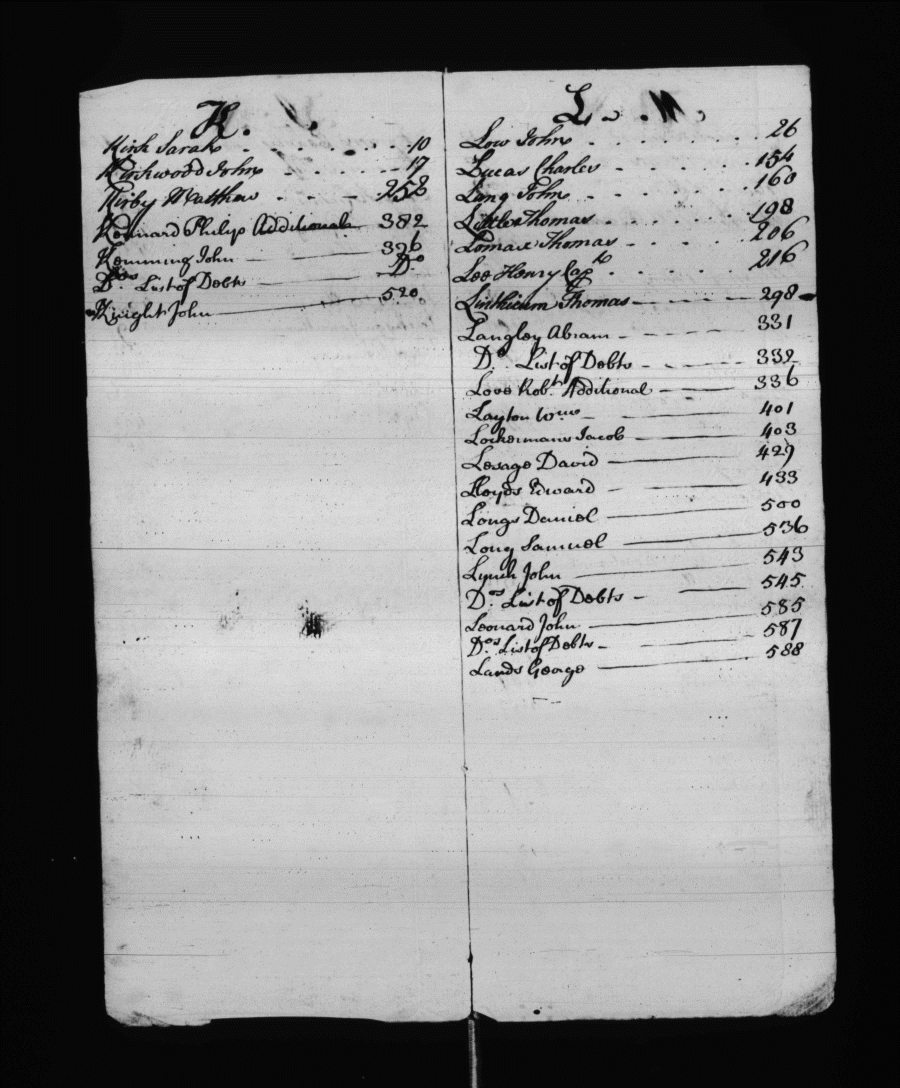 K.
Kirk Sarah 10
Kirkwood John 17
Kirby Matthew 258
Kennard Philip Additional 382
Kemming John 396
Dos List of Debts Do
Knight John 520
L.
Low John 26
Lucas Charles 154
Lang John 160
Little Thomas 198
Lomax Thomas 206
Lee Henry 216
Linthicum Thomas 298
Langley Abram 331
Do. List of Debts 332
Love Robt. Additional 336
Layton Wm 401
Lockermans Jacob 403
Lesage David 429
Lloyds Edward 433
Longs Daniel 500
Long Samuel 536
Lynch John 543
Dos List of Debts 545
Leonard John 585
Dos List of Debts 587
Lands George 588